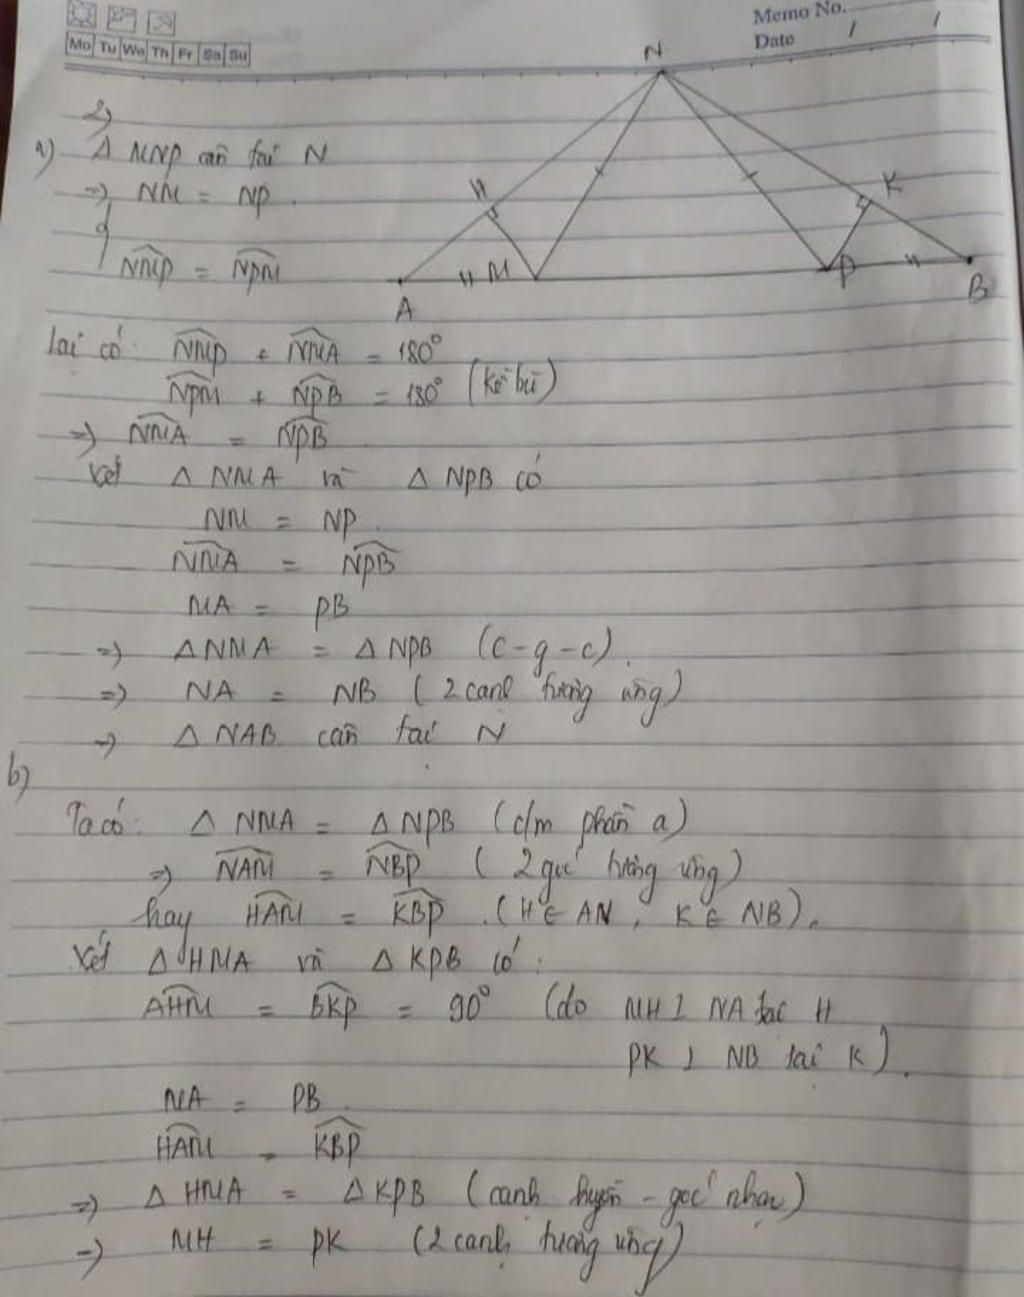 Memo No.
Date / /
Mo Tu We Th Fr Sa Su
N
2)
a) Δ MNP cân tại N
=> NM = NP.
H
K
\widehat{NMP} = \widehat{NPM}
M
P
A
B
Lại có: \widehat{NMP} + \widehat{NMA} = 180°
\widehat{NPM} + \widehat{NPB} = 180° (kề bù)
=> \widehat{NMA} = \widehat{NPB}
Xét Δ NMA và Δ NPB có
NM = NP.
\widehat{NMA} = \widehat{NPB}
MA = PB
=> Δ NMA = Δ NPB (c-g-c).
=> NA = NB (2 cạnh tương ứng)
=> Δ NAB cân tại N
b)
Ta có: Δ NMA = Δ NPB (c/m phần a)
=> \widehat{NAM} = \widehat{NBP} (2 góc tương ứng)
hay \widehat{HAM} = \widehat{KBP} . (H ∈ AN, K ∈ NB).
Xét Δ HMA và Δ KPB có:
\widehat{AHM} = \widehat{BKP} = 90° (do MH ⊥ NA tại H
PK ⊥ NB tại K).
MA = PB.
\widehat{HAM} = \widehat{KBP}
=> Δ HMA = Δ KPB (cạnh huyền - góc nhọn)
=> MH = PK (2 cạnh tương ứng)